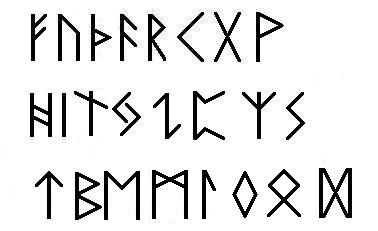 ᚠᚢᚦᚨᚱᚲᚷᚹ
ᚻᛁᚾᛃᛇᛈᛉᛊ
ᛏᛒᛖᛗᛚᛜᛟᛞ